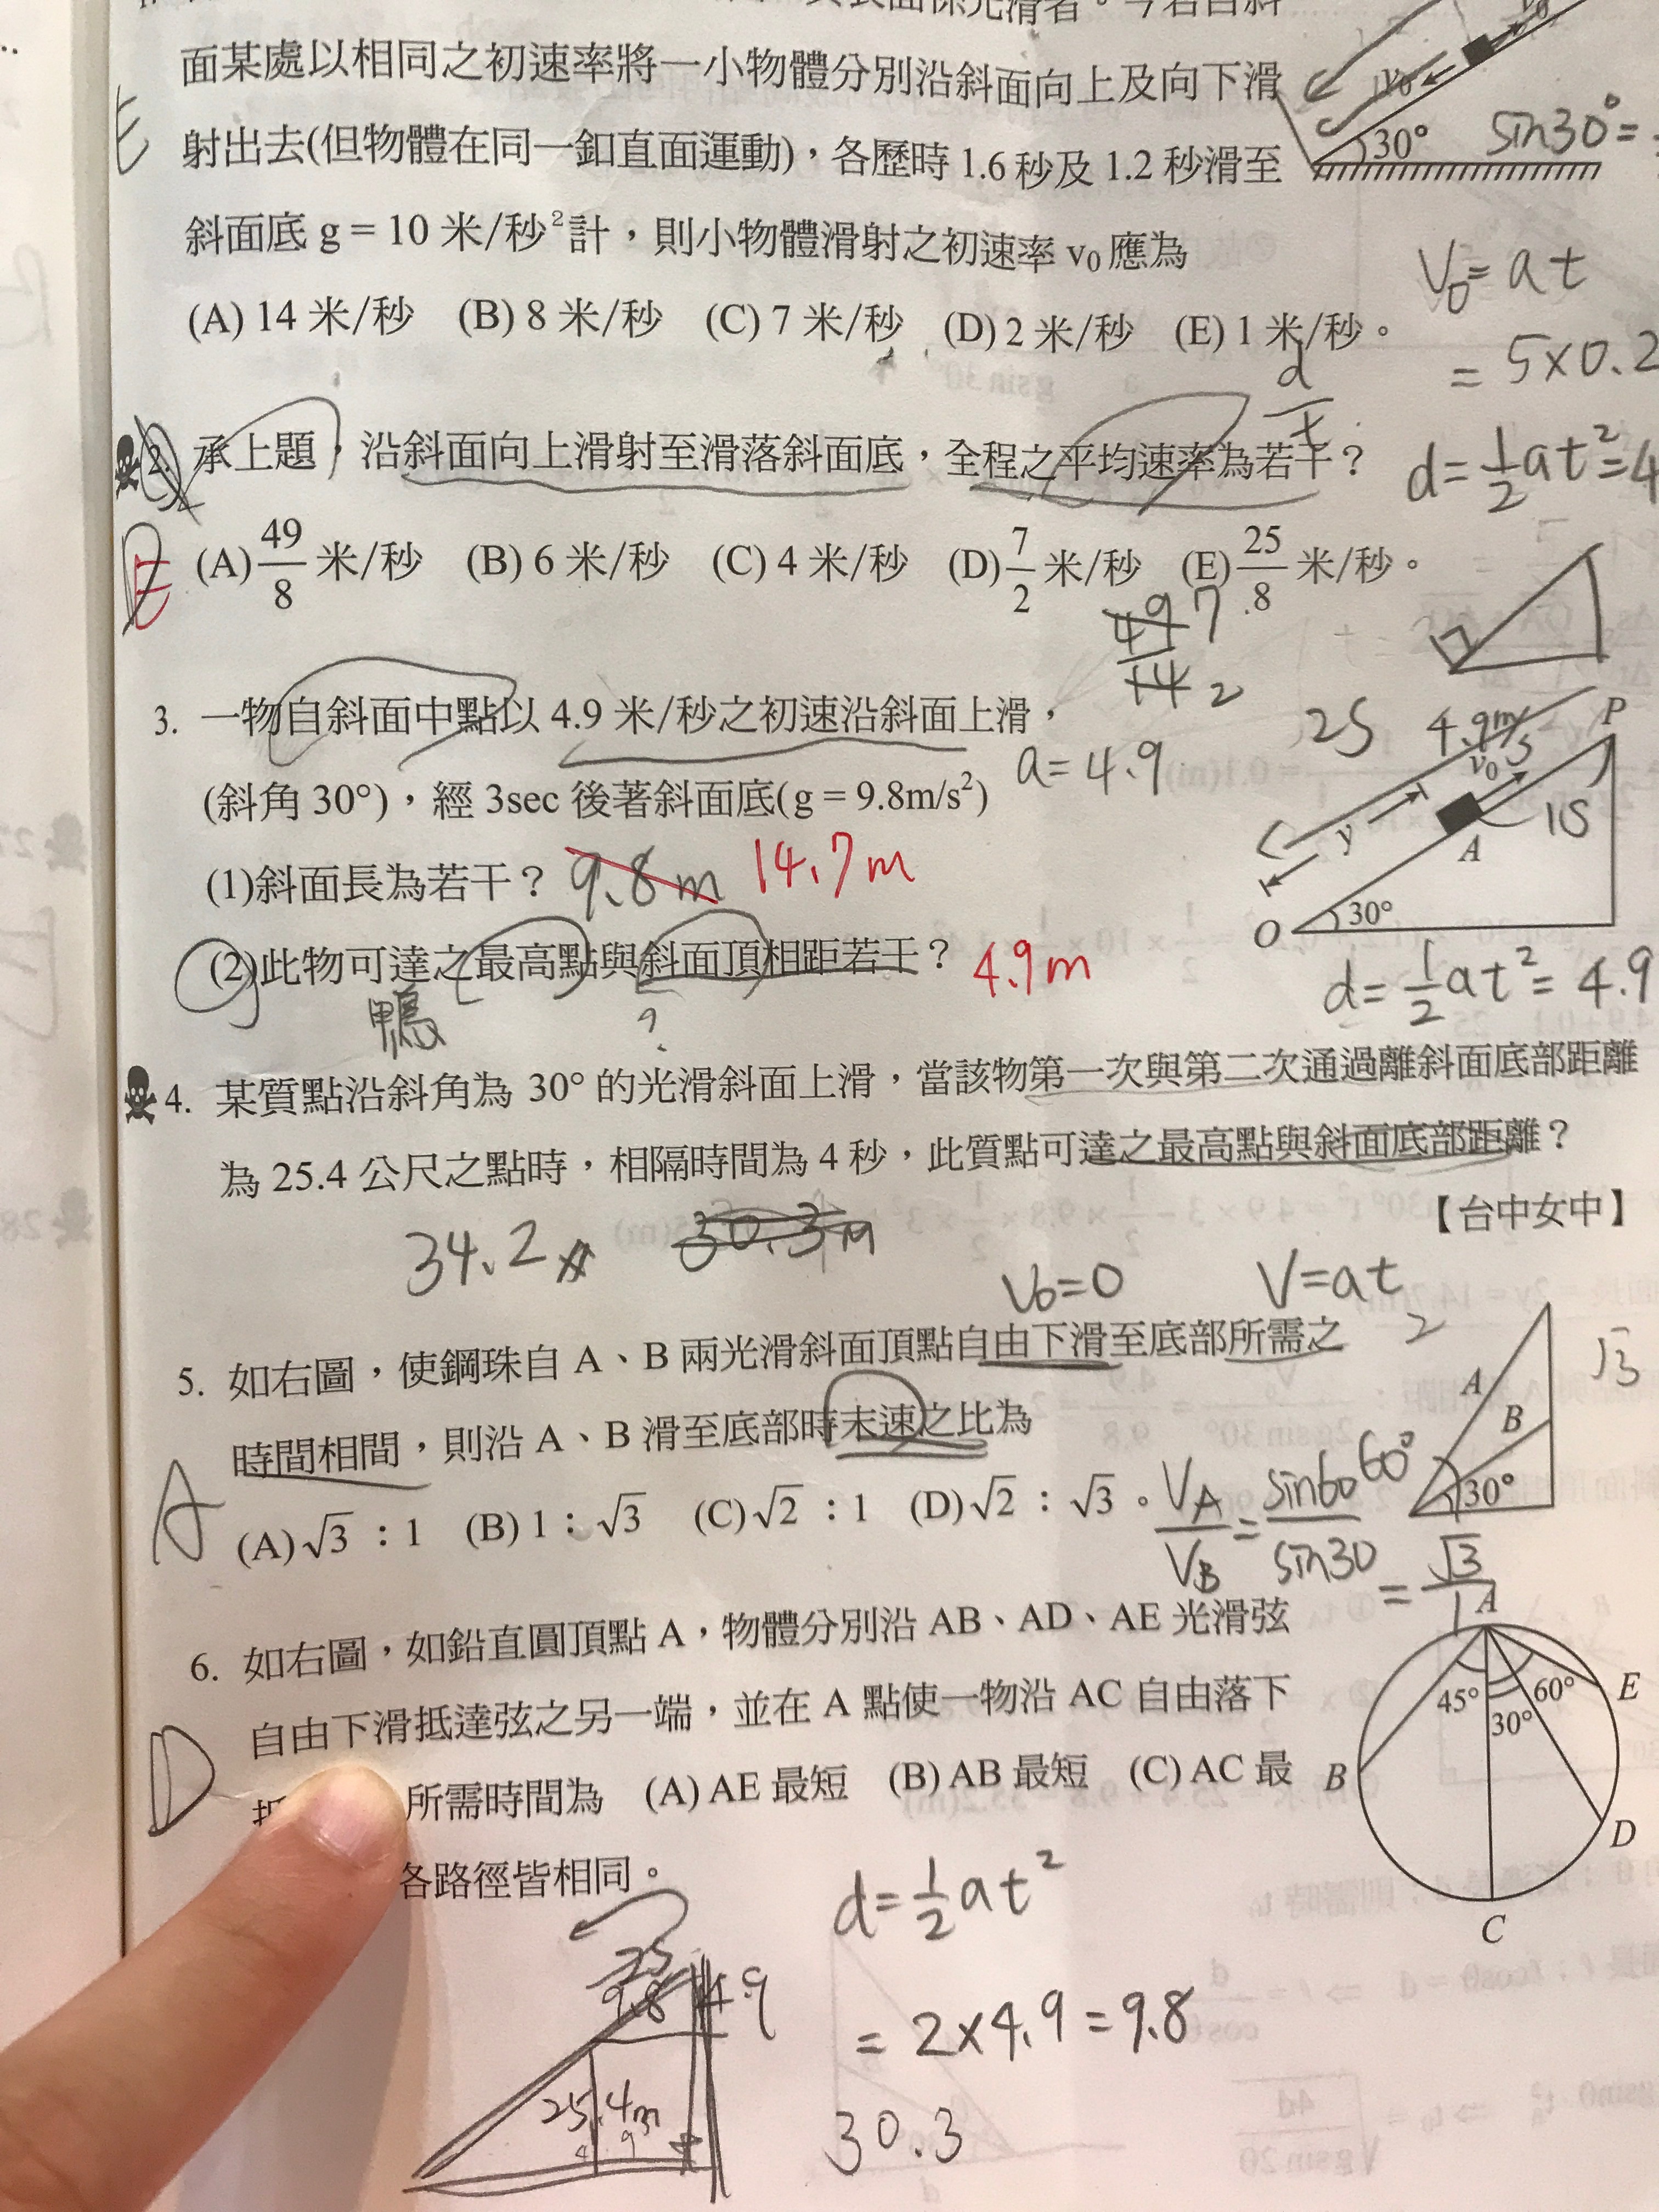 面某處以相同之初速率將一小物體分別沿斜面向上及向下滑
射出去(但物體在同一鉛直面運動)，各歷時 1.6 秒及 1.2 秒滑至
斜面底 g = 10 米/秒²計，則小物體滑射之初速率 v₀ 應為
(A) 14 米/秒 (B) 8 米/秒 (C) 7 米/秒 (D) 2 米/秒 (E) 1 米/秒。
v₀
v₀
30°
sin30°=
V₀= at
= 5×0.2
d=½at²=4
E
2. 承上題，沿斜面向上滑射至滑落斜面底，全程之平均速率為若干？
d/t
E
(A) 49/8 米/秒 (B) 6 米/秒 (C) 4 米/秒 (D) 7/2 米/秒 (E) 25/8 米/秒。
49 7
14 2
3. 一物自斜面中點以 4.9 米/秒之初速沿斜面上滑，
(斜角 30°)，經 3sec 後著斜面底(g = 9.8m/s²)
a=4.9
(1)斜面長為若干？ 9.8m 14.7m
(2)此物可達之最高點與斜面頂相距若干？ 4.9m
鴨
?
2S 4.9m/s P
v₀
1S
y
A
O 30°
d=½at²= 4.9
4. 某質點沿斜角為 30° 的光滑斜面上滑，當該物第一次與第二次通過離斜面底部距離
為 25.4 公尺之點時，相隔時間為 4 秒，此質點可達之最高點與斜面底部距離？
【台中女中】
34.2 30.3m
V₀=0 V=at
5. 如右圖，使鋼珠自 A、B 兩光滑斜面頂點自由下滑至底部所需之
時間相間，則沿 A、B 滑至底部時末速之比為
A
(A)√3 : 1 (B) 1 : √3 (C)√2 : 1 (D)√2 : √3 。
VA/VB = sin60/sin30
= √3/1
2
√3
A
B
60°
30°
6. 如右圖，如鉛直圓頂點 A，物體分別沿 AB、AD、AE 光滑弦
自由下滑抵達弦之另一端，並在 A 點使一物沿 AC 自由落下
D
所需時間為 (A) AE 最短 (B) AB 最短 (C) AC 最
各路徑皆相同。
A
45°
30°
60°
E
B
D
C
d=½at²
= 2×4.9=9.8
30.3
2S
9.8
4.9
25.4m